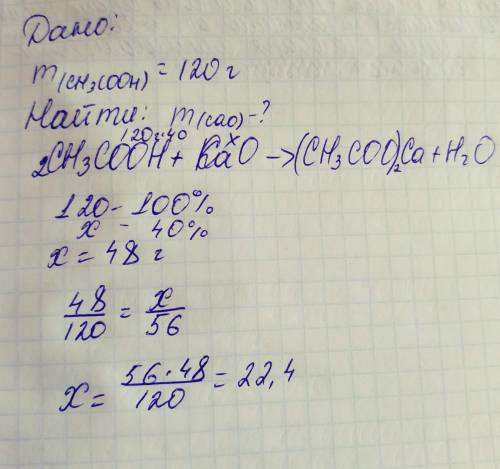 Дано:
m(CH₃COOH) = 120 г
Найти: m(CaO)-?
120г·40 x
2CH₃COOH + CaO → (CH₃COO)₂Ca + H₂O
120 - 100%
x - 40%
x = 48 г
48/120 = x/56
x = 56·48/120 = 22,4